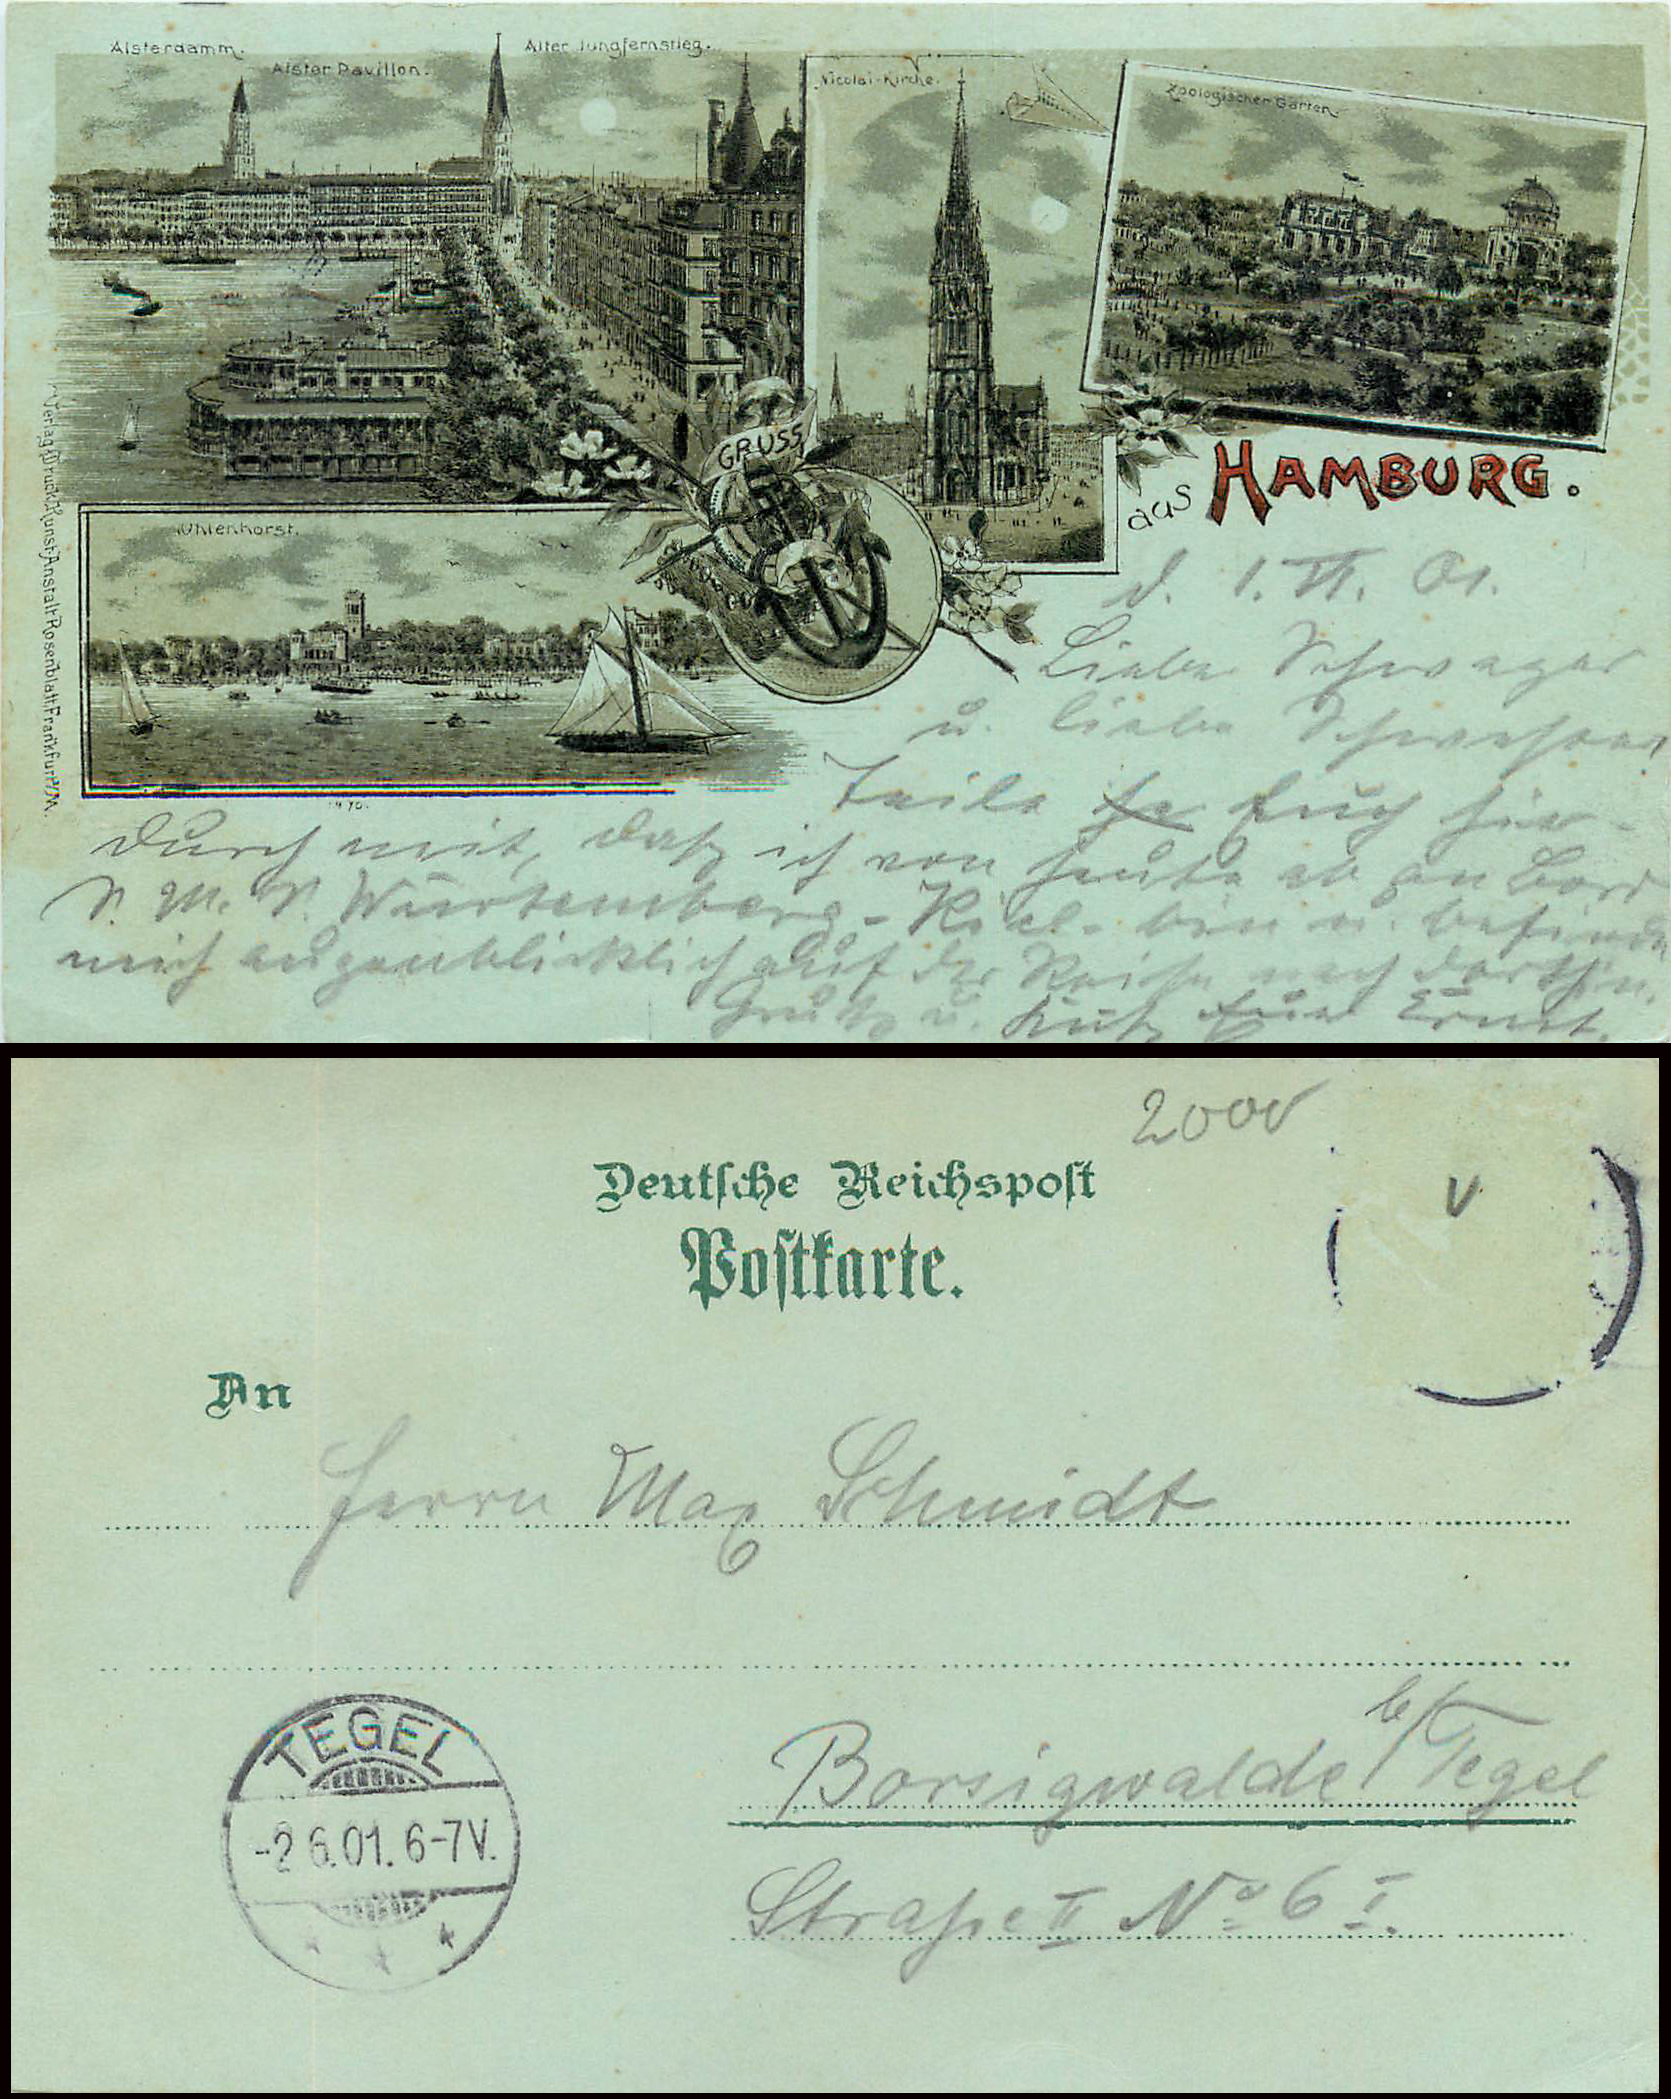 Alsterdamm.
Alster Pavillon.
Alter Jungfernstieg.
Nicolai-Kirche.
Zoologischer Garten
Uhlenhorst.
GRUSS
aus HAMBURG.
Verlag, Druck, Kunst-Anstalt Rosenblatt, Frankfurt a/M.
d. 1. VI. 01.
Liebe Schwager
u. liebe Schwester
Teile Euch hier-
durch mit, daß ich von heute ab an Bord
S. M. S. Würtemberg - Kiel - bin u. befinde
mich augenblicklich auf der Reise nach dorthin.
Gruß u. Kuß Euer Ernst.
2000
V
Deutsche Reichspost
Postkarte.
An
Herrn Max Schmidt
Borsigwalde b/Tegel
Straße II No 6 I.
TEGEL
-2 6.01. 6-7V.